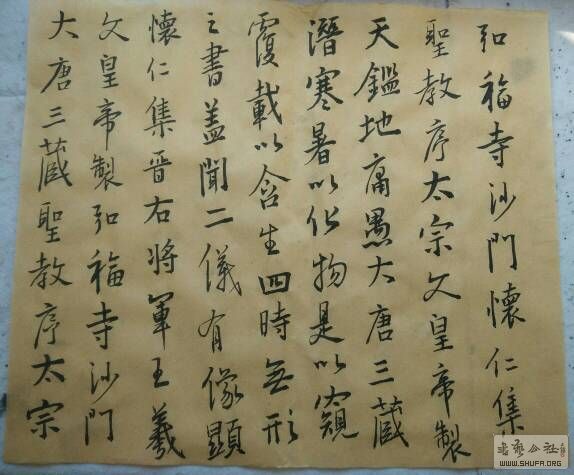 大唐三藏聖教序太宗
文皇帝製弘福寺沙門
懷仁集晉右將軍王羲
之書蓋聞二儀有像顯
覆載以含生四時無形
潛寒暑以化物是以窺
天鑑地庸愚大唐三藏
聖教序太宗文皇帝製
弘福寺沙門懷仁集
書藝公社
WWW.SHUFA.ORG